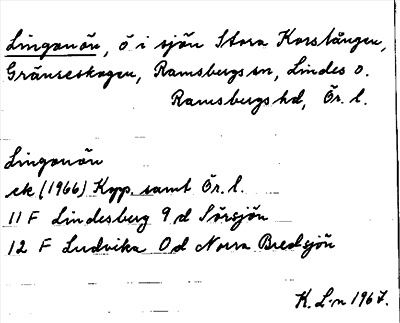 Lingonön, ö i sjön Stora Korslången,
Gränsskogen, Ramsbergs sn, Lindes o.
Ramsbergs hd, Ör. l.
Lingonön
ek (1966) Kopp. samt Ör. l.
11 F Lindesberg 9 d Sörsjön
12 F Ludvika 0 d Norra Bredsjön
K. L-n 1967.